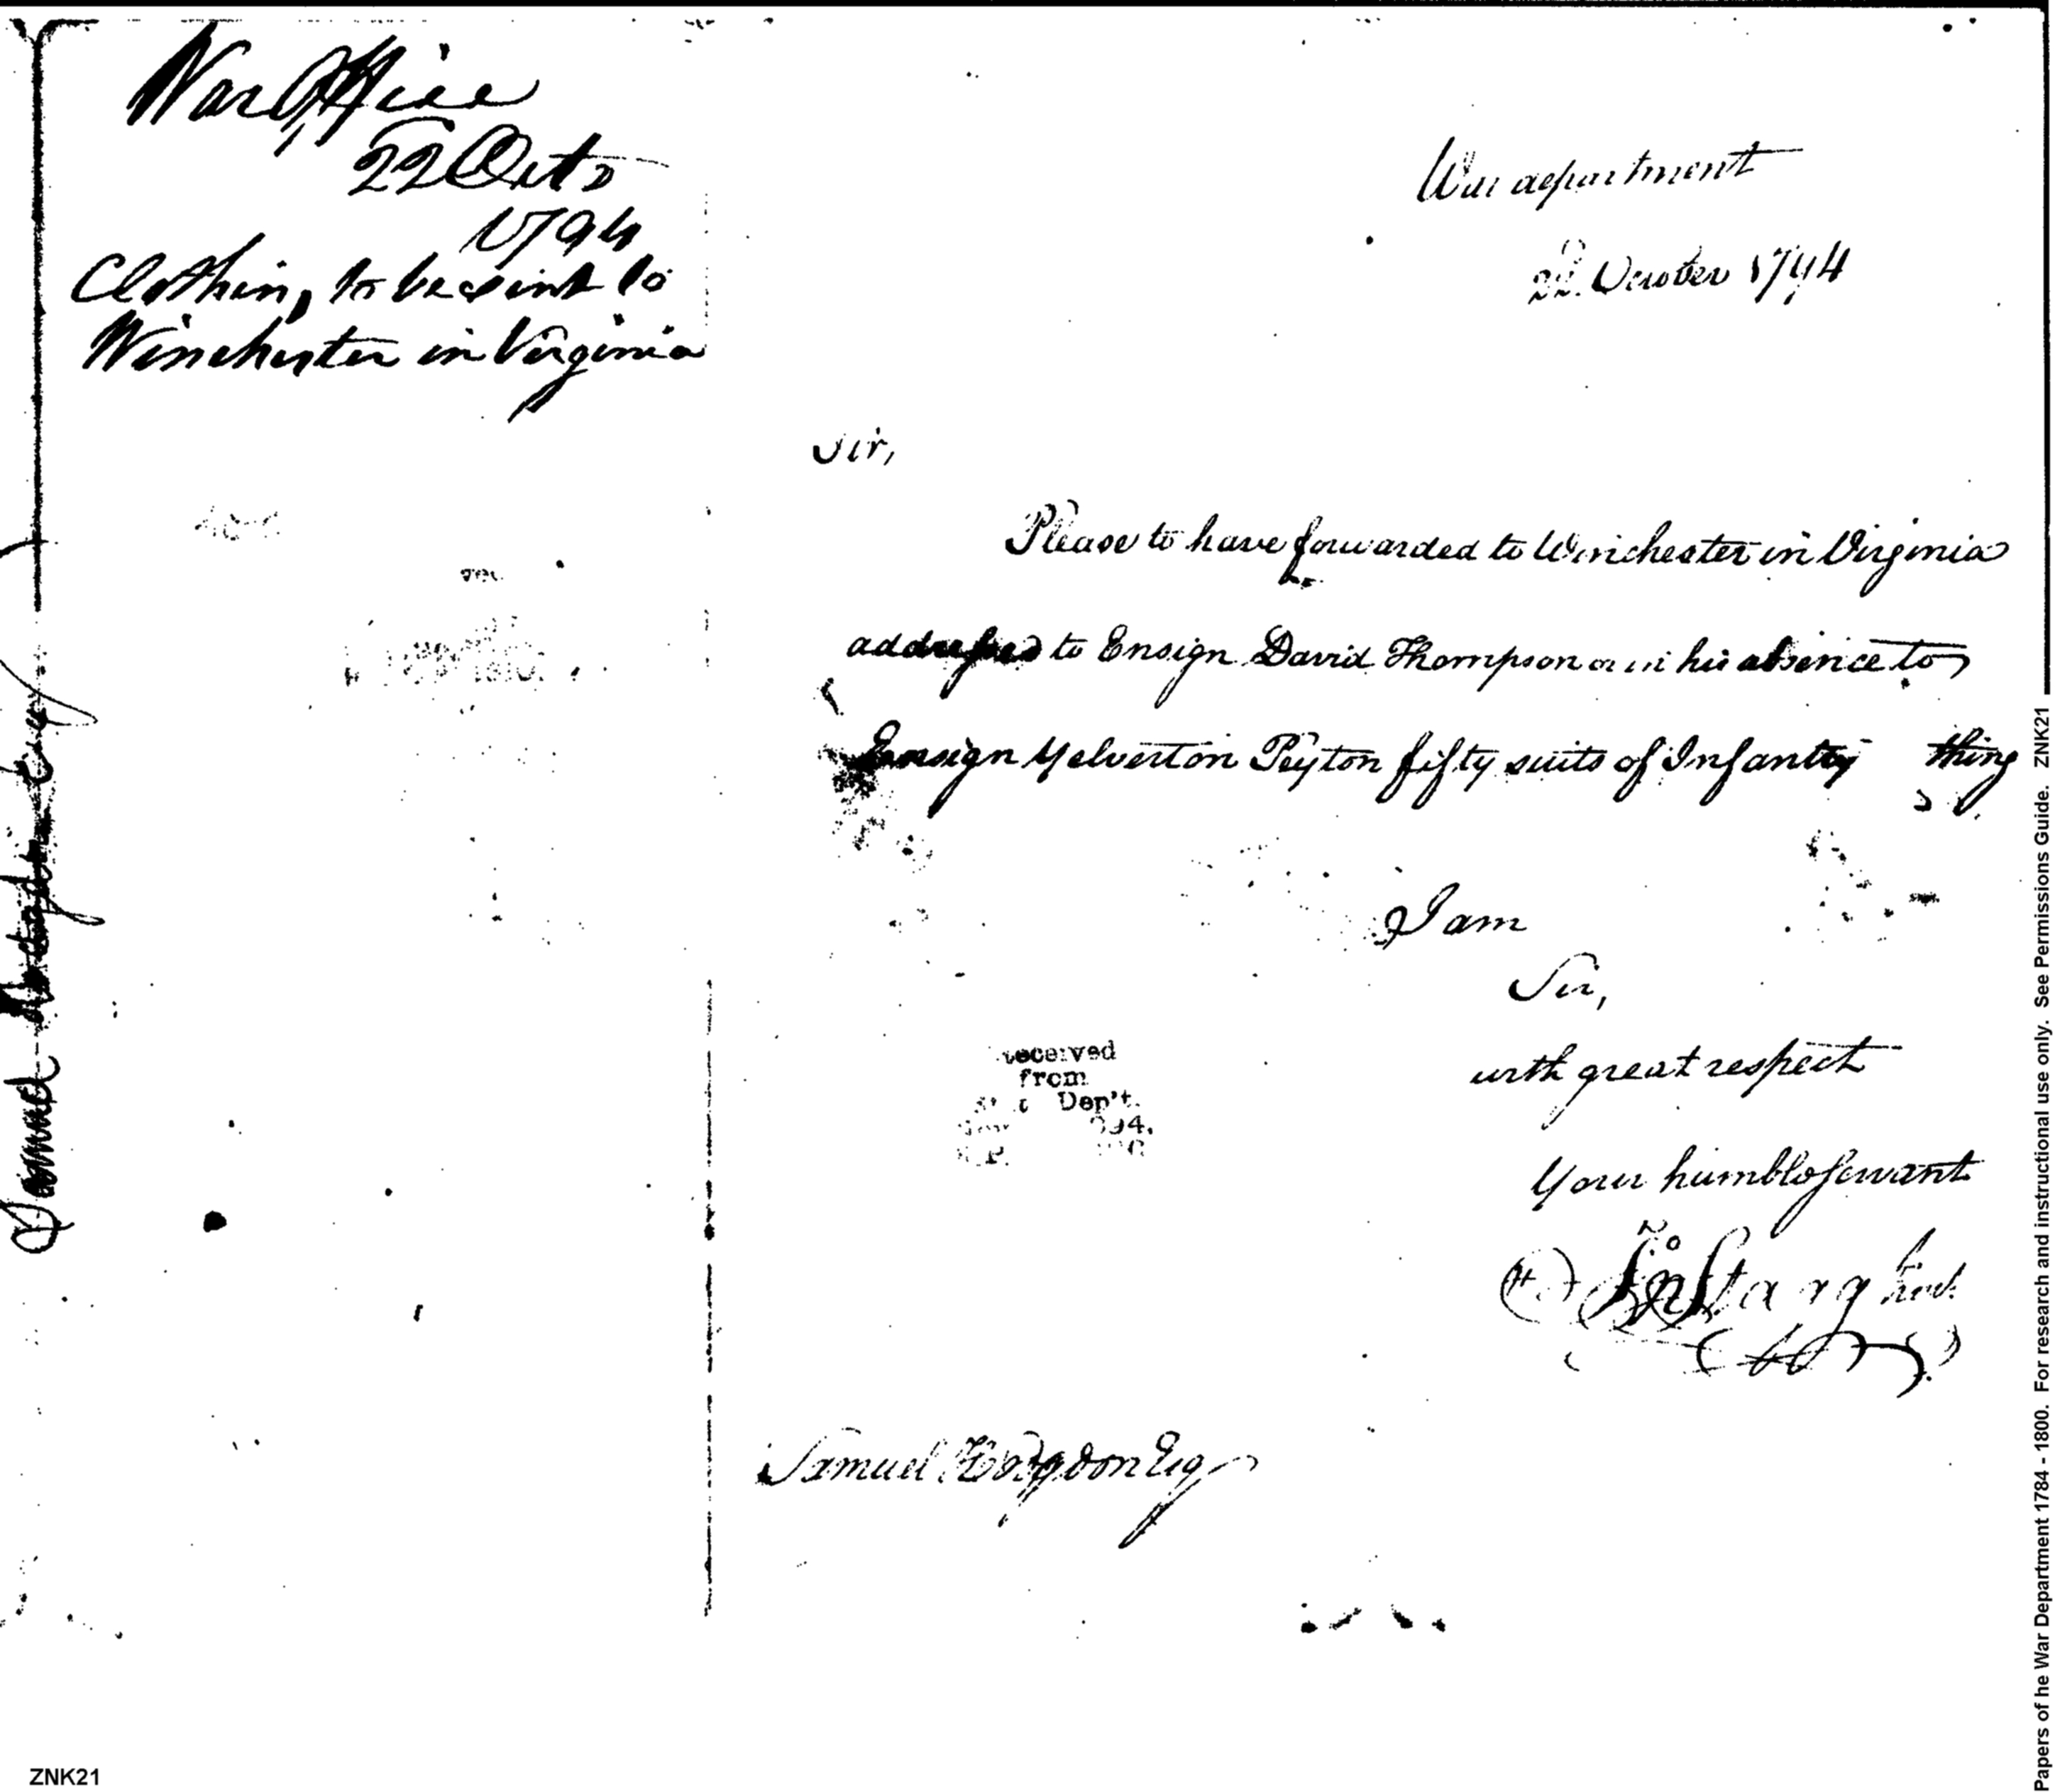 War Office
22 Octo
1794
Clothing to be sent to
Winchester in Virginia
War department
22 October 1794
Sir,
Please to have forwarded to Winchester in Virginia
addressed to Ensign David Thompson or in his absence to
Ensign Yelverton Peyton fifty suits of Infantry thing
I am
Sir,
with great respect
Your humble servant
Received
from
Dep't.
Samuel Hodgdon Esq
Samuel Hodgdon Esq
Papers of he War Department 1784 - 1800. For research and instructional use only. See Permissions Guide. ZNK21
ZNK21